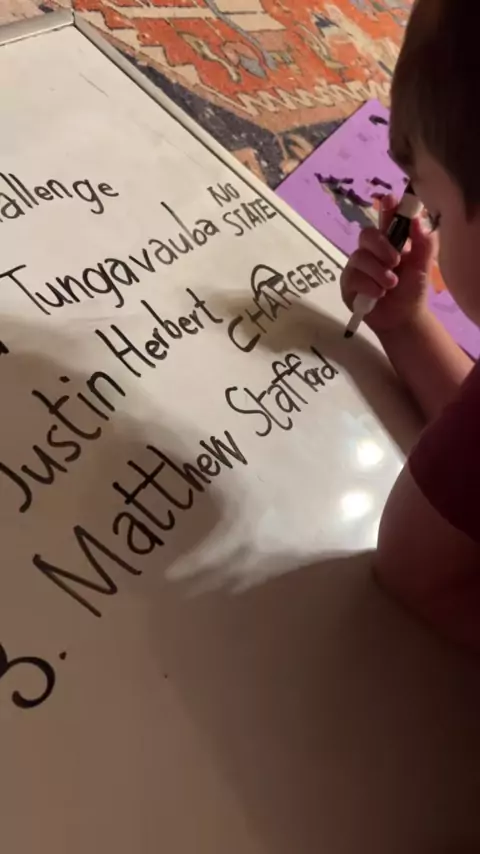 allenge
Tungavauba NO STATE
Justin Herbert CHARGERS
Matthew Stafford
3.